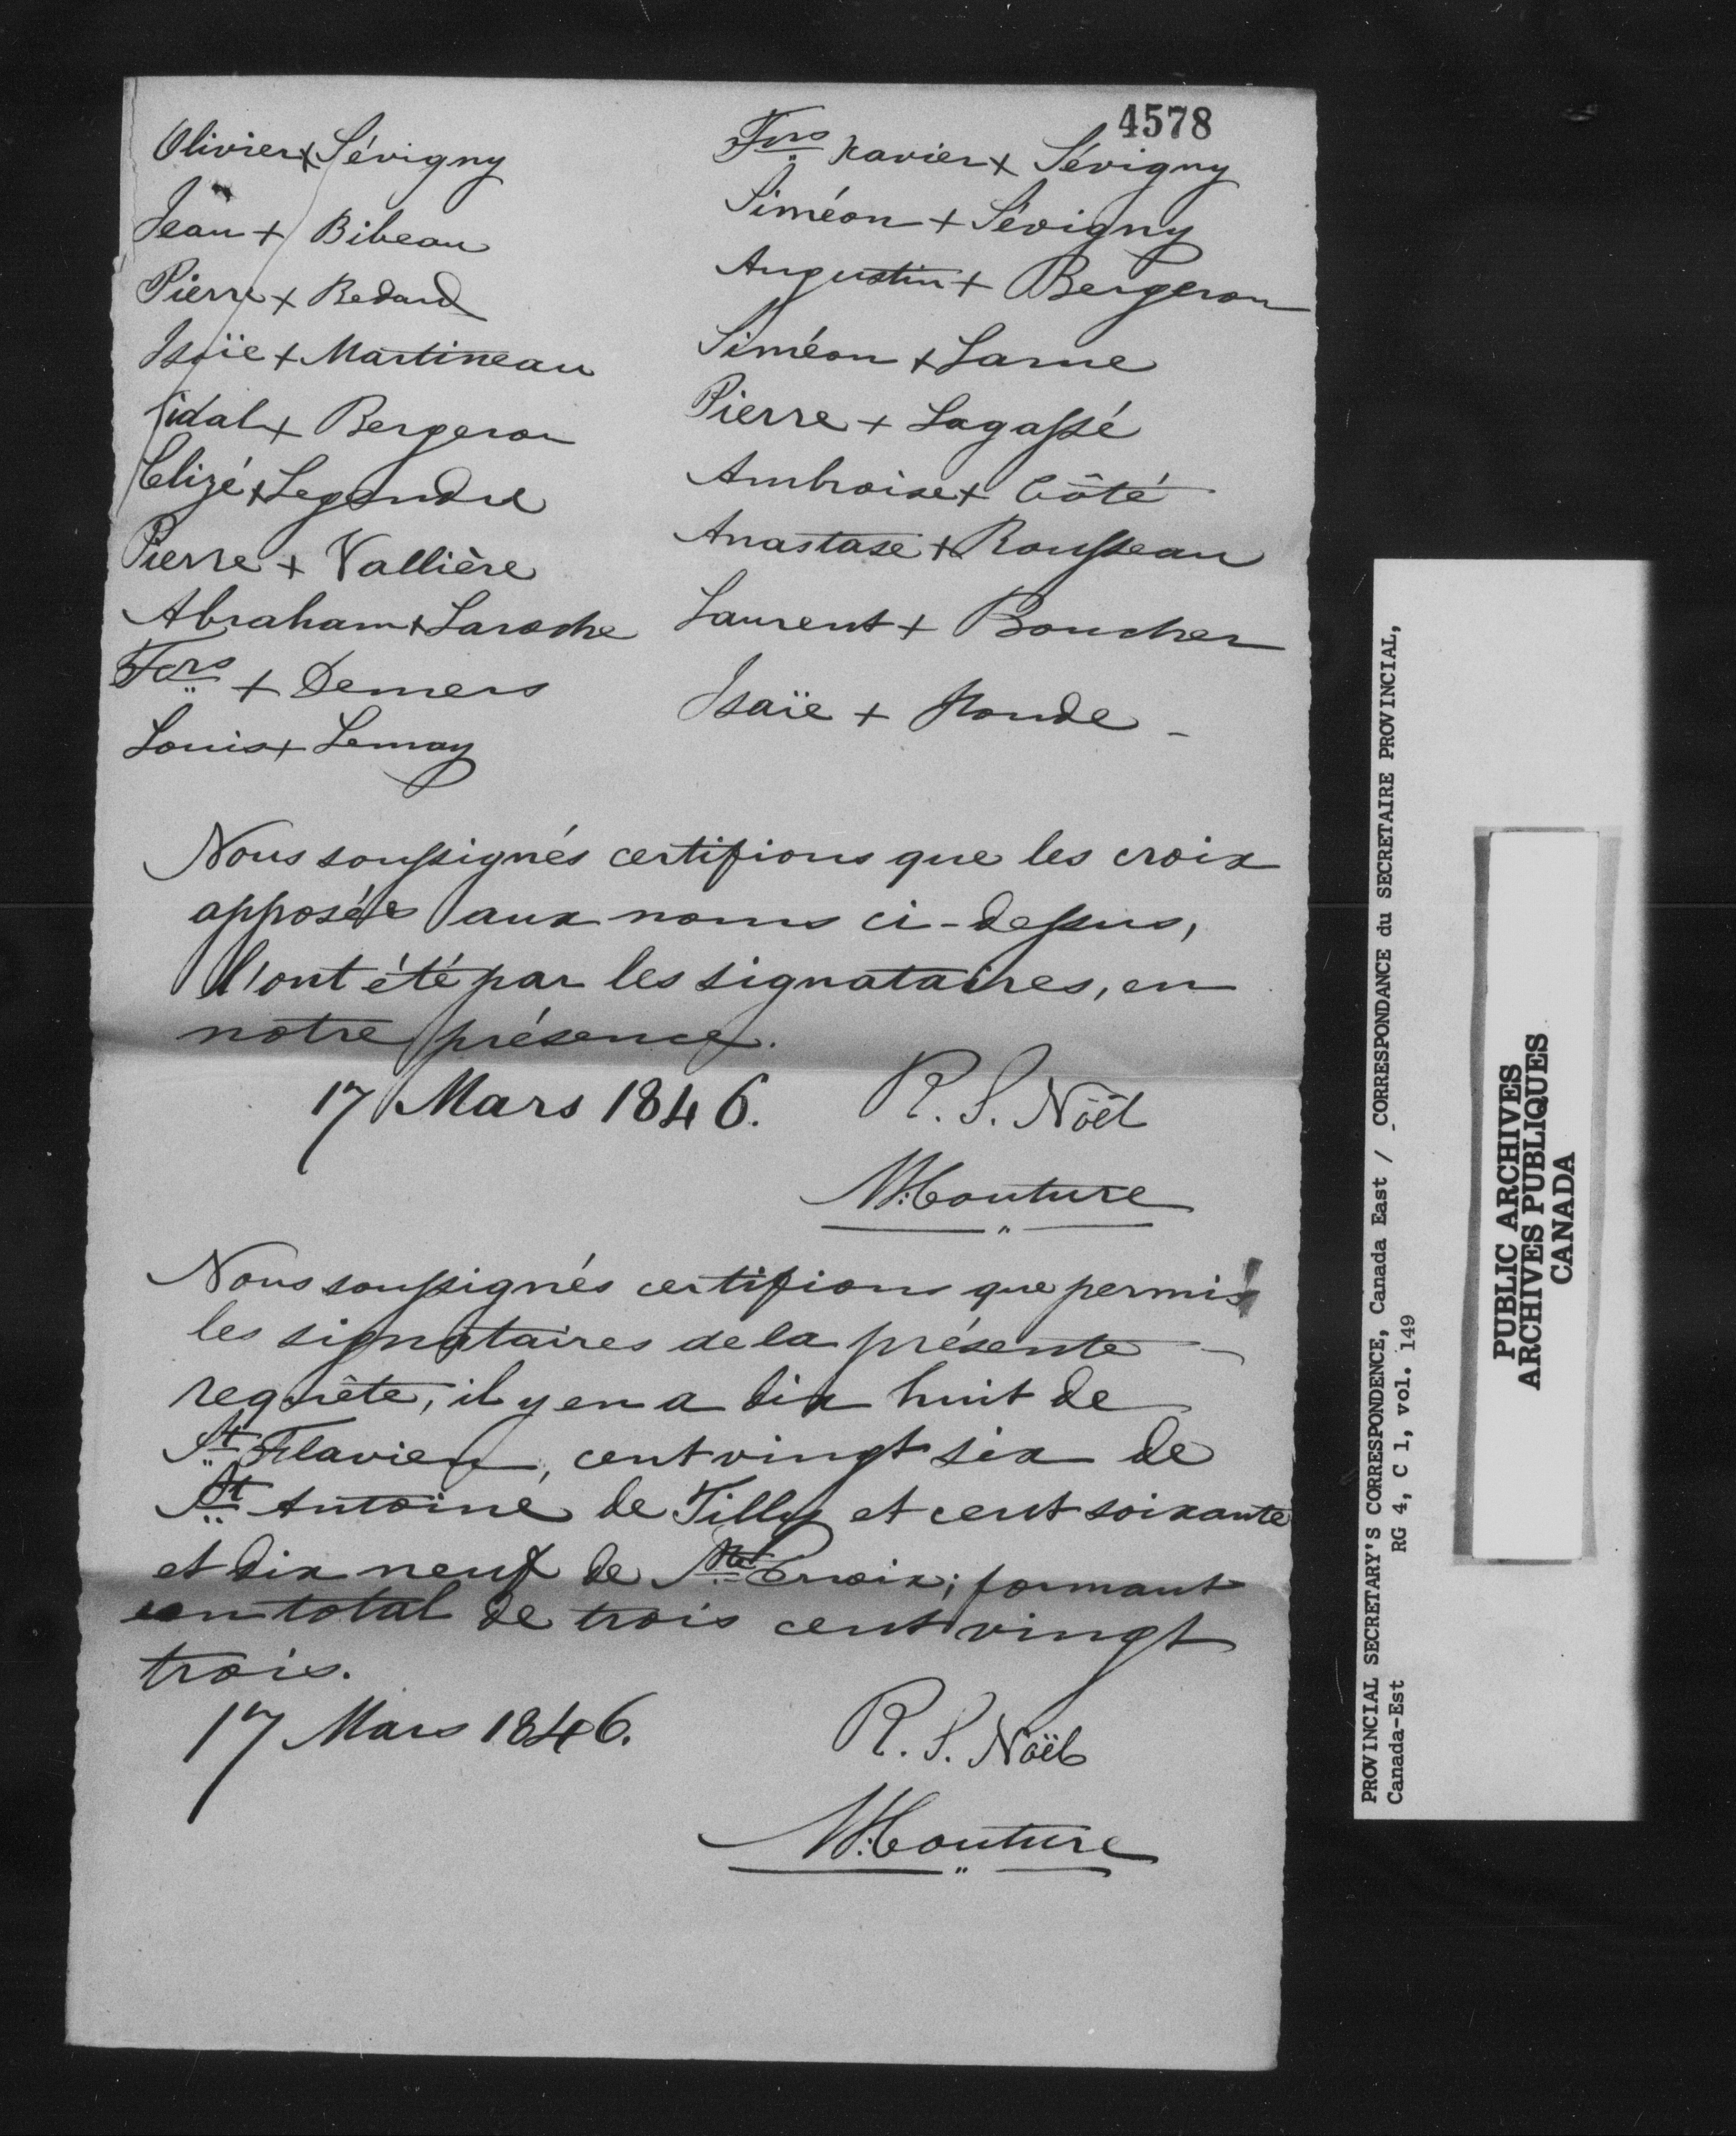 4578
Olivier + Sévigny
Jean + Bibeau
Pierre + Bedard
Isaïe + Martineau
Vidal + Bergeron
Elizé + Legendre
Pierre + Vallière
Abraham + Laroche
Frs + Demers
Louis + Lemay
Frs Xavier + Sévigny
Siméon + Sévigny
Augustin + Bergeron
Siméon + Larue
Pierre + Lagassé
Ambroise + Côté
Anastase + Rousseau
Laurent + Boucher
Isaïe + Houde
Nous soussignés certifions que les croix
apposées aux noms ci-dessus,
l'ont été par les signataires, en
notre présence.
17 Mars 1846. R. S. Noël
M: Couture
Nous soussignés certifions que permis
les signataires de la présente
requête, il y en a dix huit de
St Flavien, cent vingt six de
St Antoine de Tilly et cent soixante
et dix neuf de Ste Croix; formant
un total de trois cent vingt
trois.
17 Mars 1846. R. S. Noël
M: Couture
PROVINCIAL SECRETARY'S CORRESPONDENCE, Canada East / CORRESPONDANCE du SECRETAIRE PROVINCIAL,
Canada-Est RG 4, C 1, vol. 149
PUBLIC ARCHIVES
ARCHIVES PUBLIQUES
CANADA